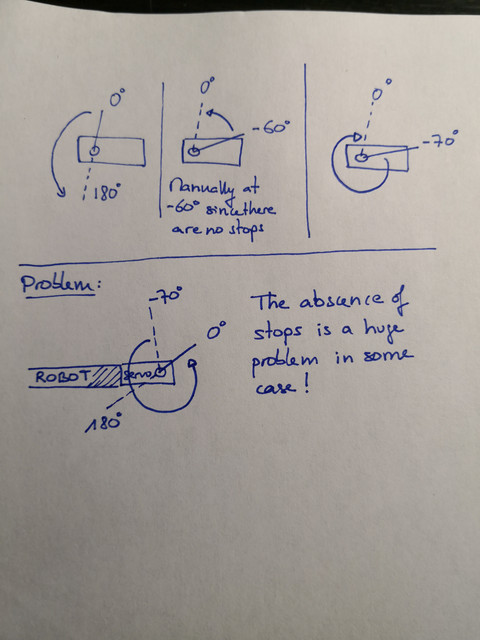 0°
180°
0°
-60°
Manually at
-60° since there
are no stops
0°
-70°
Problem:
-70°
0°
ROBOT
Servo
180°
The absence of
stops is a huge
problem in some
case!